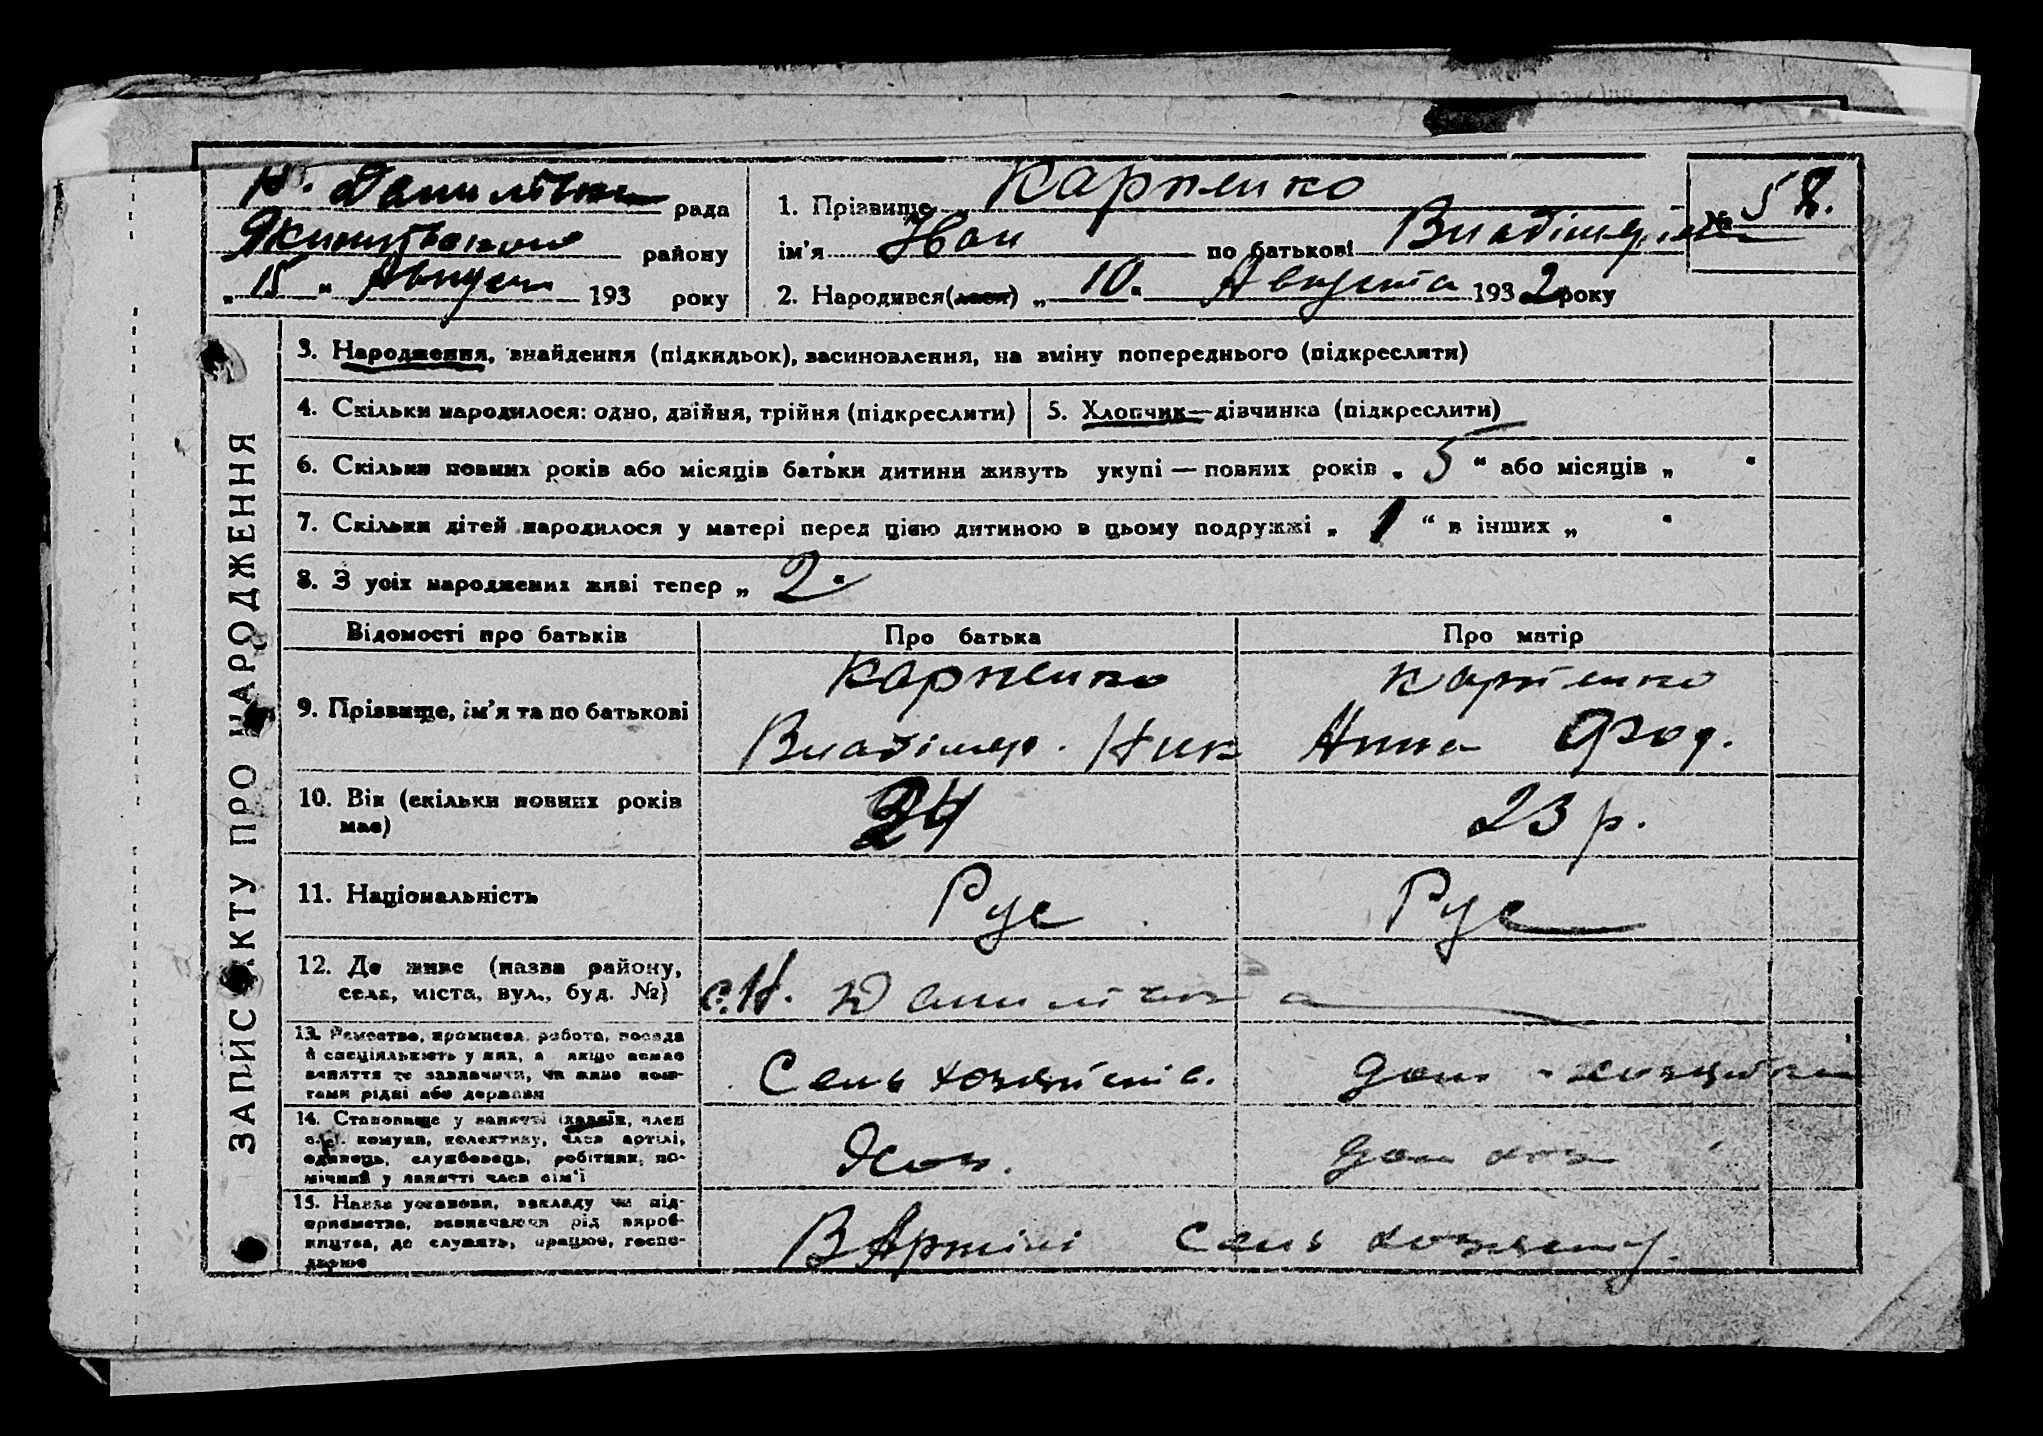 Н. Данилівка рада
Якимівського району
„ 15 “ Август 193 року
1. Прізвище Карпенко
№ 58.
ім'я Иван по батькові Владімир
2. Народився(лася) „ 10. Августа 1932 року
ЗАПИС АКТУ ПРО НАРОДЖЕННЯ
3. Народження, знайдення (підкидьок), засиновлення, на зміну попереднього (підкреслити)
4. Скільки народилося: одно, двійня, трійня (підкреслити)
5. Хлопчик—дівчинка (підкреслити)
6. Скільки повних років або місяців батьки дитини живуть укупі — повних років „ 5 “ або місяців „ “
7. Скільки дітей народилося у матері перед цією дитиною в цьому подружжі „ 1 “ в інших „ “
8. З усіх народжених живі тепер „ 2 “
Відомості про батьків Про батька Про матір
9. Прізвище, ім'я та по батькові
Карпенко Карпенко
Владімир. Ник Анна Фод.
10. Вік (скільки повних років має)
24 23 р.
11. Національність Рус Рус
12. Де живе (назва району,
села, міста, вул., буд. №)
с. Н. Данилівка
13. Ремество, промисел, робота, посада
й спеціяльність у них, а якщо немає
заняття то зазначити, чи живе кош-
тами рідні або держави
Сель хозяйств. дом-хозяйка
14. Становище у занятті (хазяїн, член
с.-г. комуни, колективу, член артілі,
одинець, службовець, робітник, по-
мічний у занятті член сім'ї
дом хоз
15. Назва установи, закладу чи під-
приємства, зазначаючи рід вироб-
ництва, де служить, працює, госпо-
дарює
В Артілі Сель